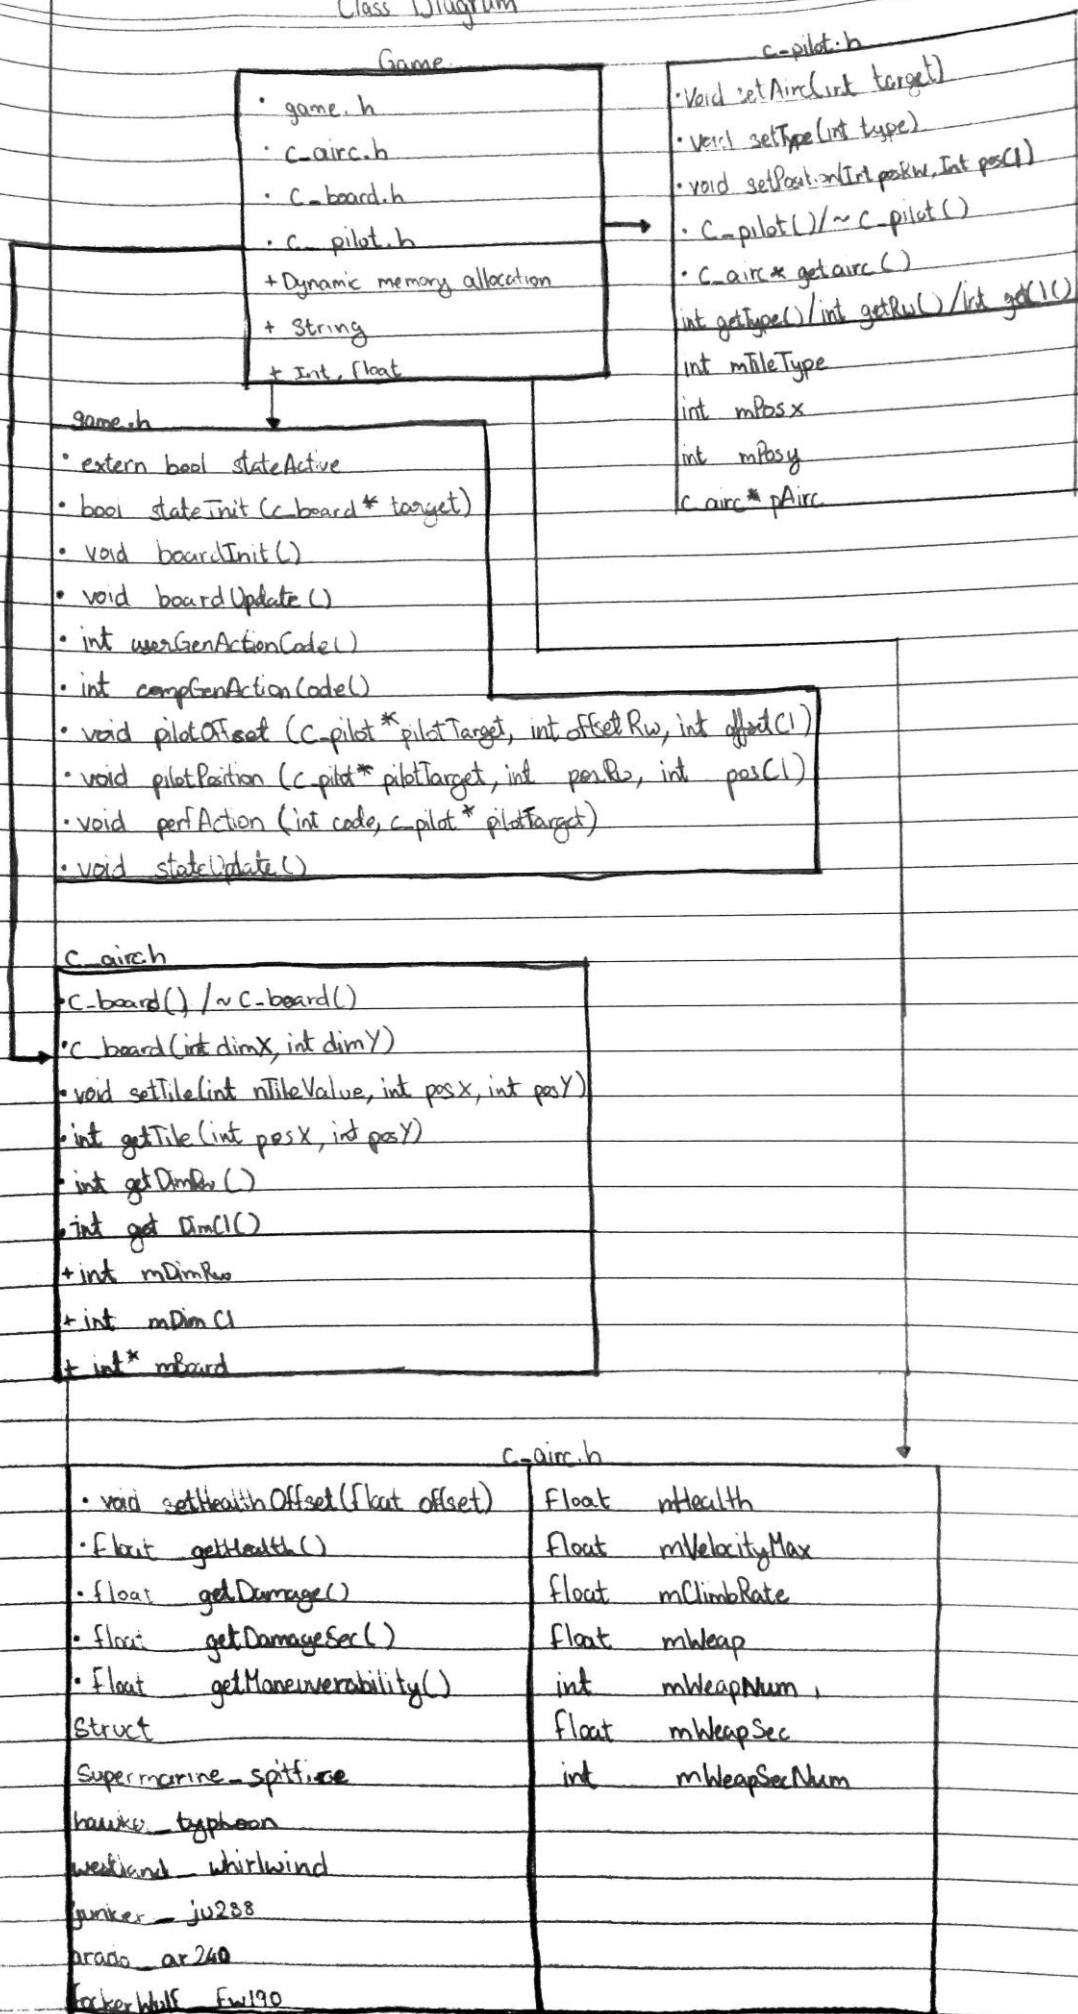 Class Diagram
Game
· game.h
· c_airc.h
· c_board.h
· c_pilot.h
+ Dynamic memory allocation
+ String
+ Int, float
c_pilot.h
· Void setAirc(int target)
· void setType(int type)
· void setPosition(Int posRw, Int posCl)
· C_pilot()/~C_pilot()
· C_airc* getairc()
int getType()/int getRw()/int getCl()
int mTileType
int mPosx
int mPosy
C_airc* pAirc
game.h
· extern bool stateActive
· bool stateInit (c_board* target)
· void boardInit()
· void boardUpdate()
· int userGenActionCode()
· int compGenActionCode()
· void pilotOffset (C_pilot* pilotTarget, int offsetRw, int offsetCl)
· void pilotPosition (c_pilot* pilotTarget, int posRw, int posCl)
· void perfAction (int code, c_pilot* pilotTarget)
· void stateUpdate()
C_airc.h
· C_board() /~C_board()
· C_board(int dimX, int dimY)
· void setTile(int nTileValue, int posX, int posY)
· int getTile(int posX, int posY)
· int getDimRw()
· int get DimCl()
+ int mDimRw
+ int mDimCl
+ int* mBoard
C_airc.h
· void setHealthOffset(float offset)
· float getHealth()
· float getDamage()
· float getDamageSec()
· Float getManeuverability()
Struct
Supermarine_spitfire
hawke_typhoon
westland_whirlwind
junker_ju288
arado_ar240
fockerWulf_Fw190
Float mHealth
float mVelocityMax
float mClimbRate
float mWeap
int mWeapNum
float mWeapSec
int mWeapSecNum